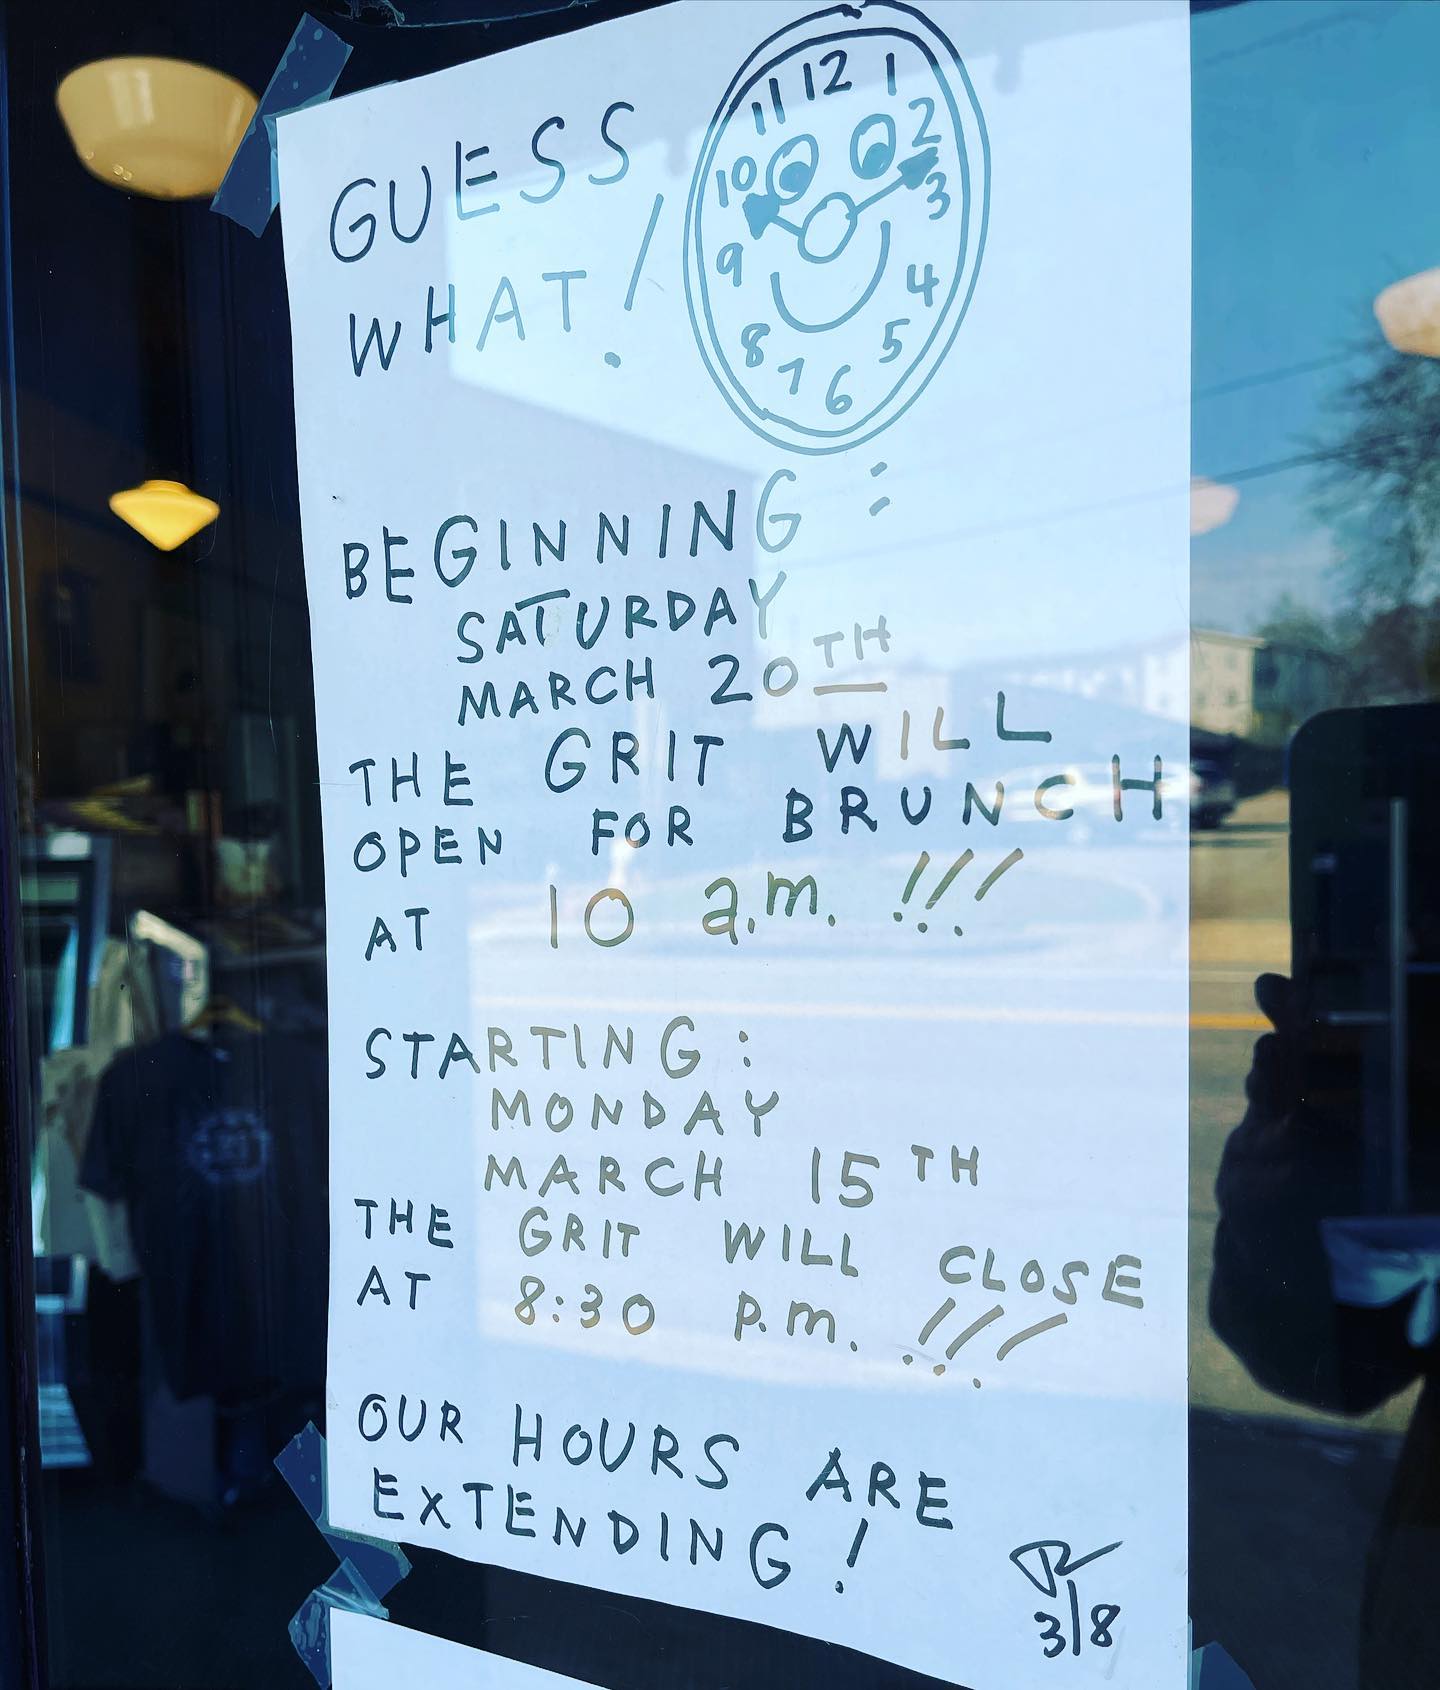 GUESS
WHAT!
12
1
2
3
4
5
6
7
8
9
10
11
BEGINNING:
SATURDAY
MARCH 20TH
THE GRIT WILL
OPEN FOR BRUNCH
AT 10 a.m. !!!
STARTING:
MONDAY
MARCH 15TH
THE GRIT WILL CLOSE
AT 8:30 p.m. !!!
OUR HOURS ARE
EXTENDING!
3/8